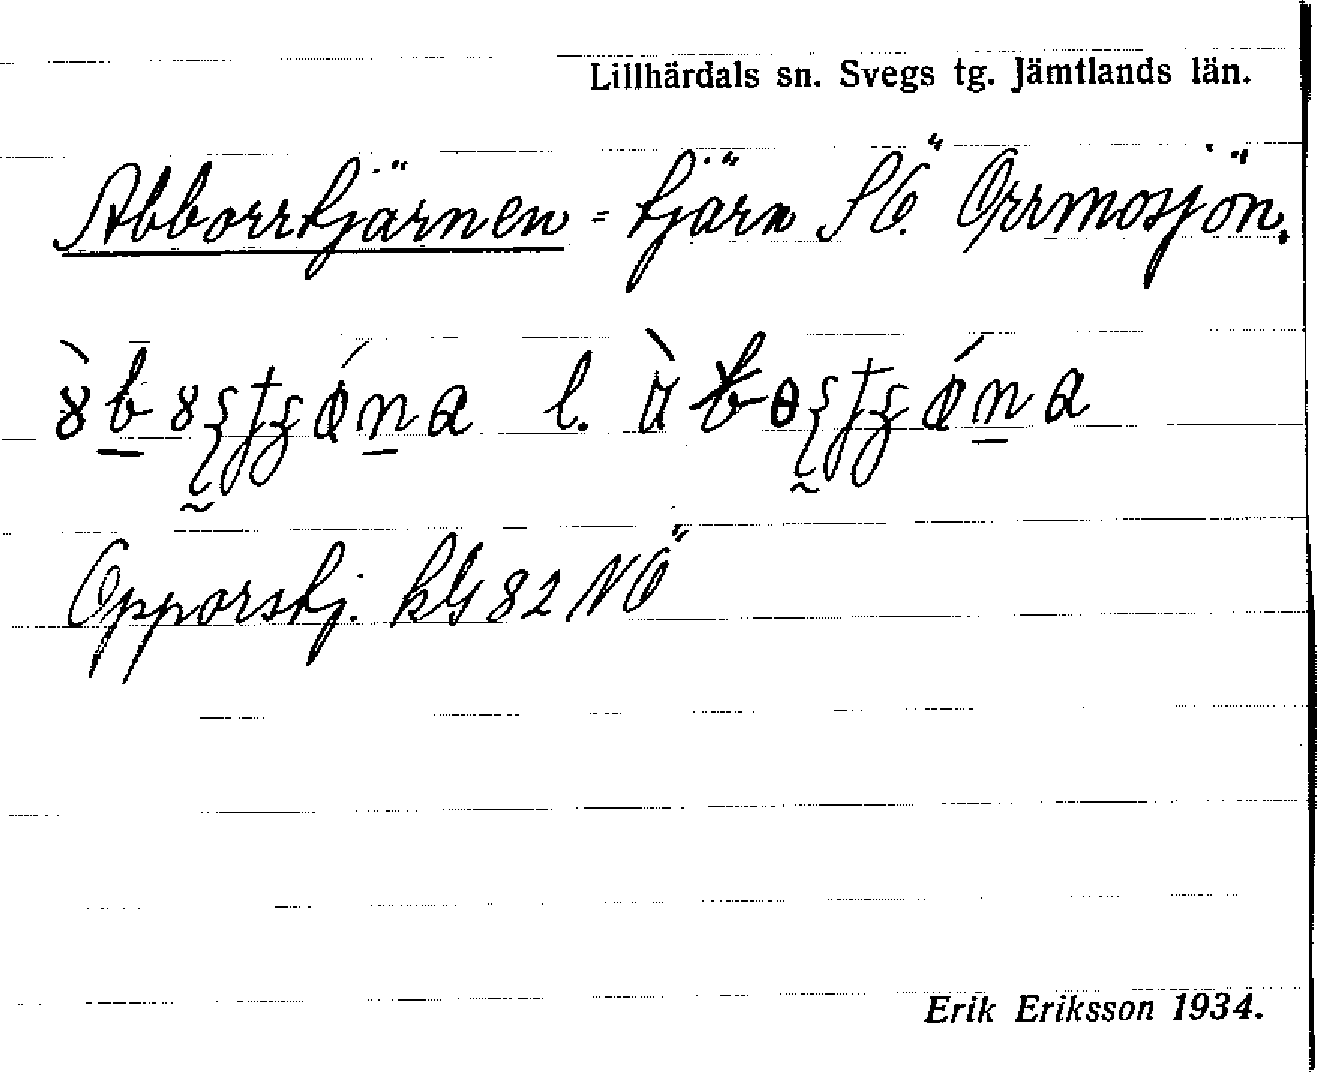 Lillhärdals sn. Svegs tg. Jämtlands län.
Abborrtjärnen - tjärn SÖ. Orrmosjön.
l.
Opporstj. kG 82 NÖ
Erik Eriksson 1934.